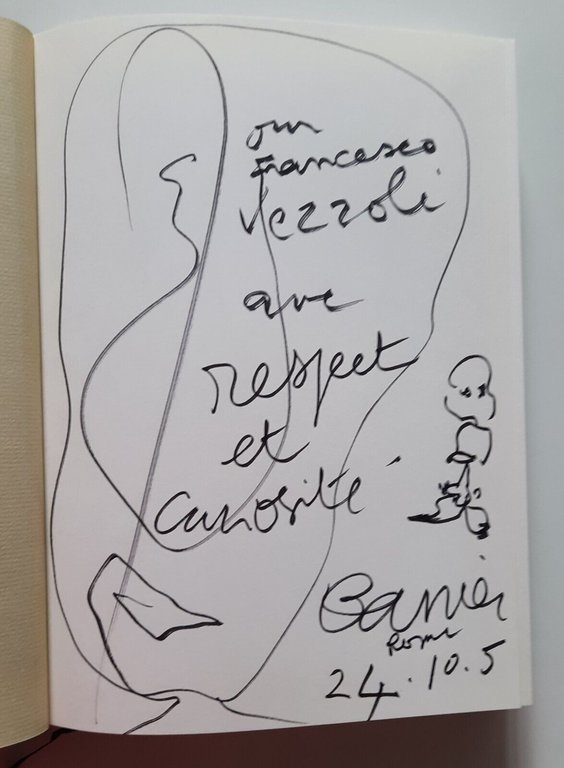 pour
Francesco
Vezzoli
avec
respect
et
curiosité
Banier
Rome
24.10.5